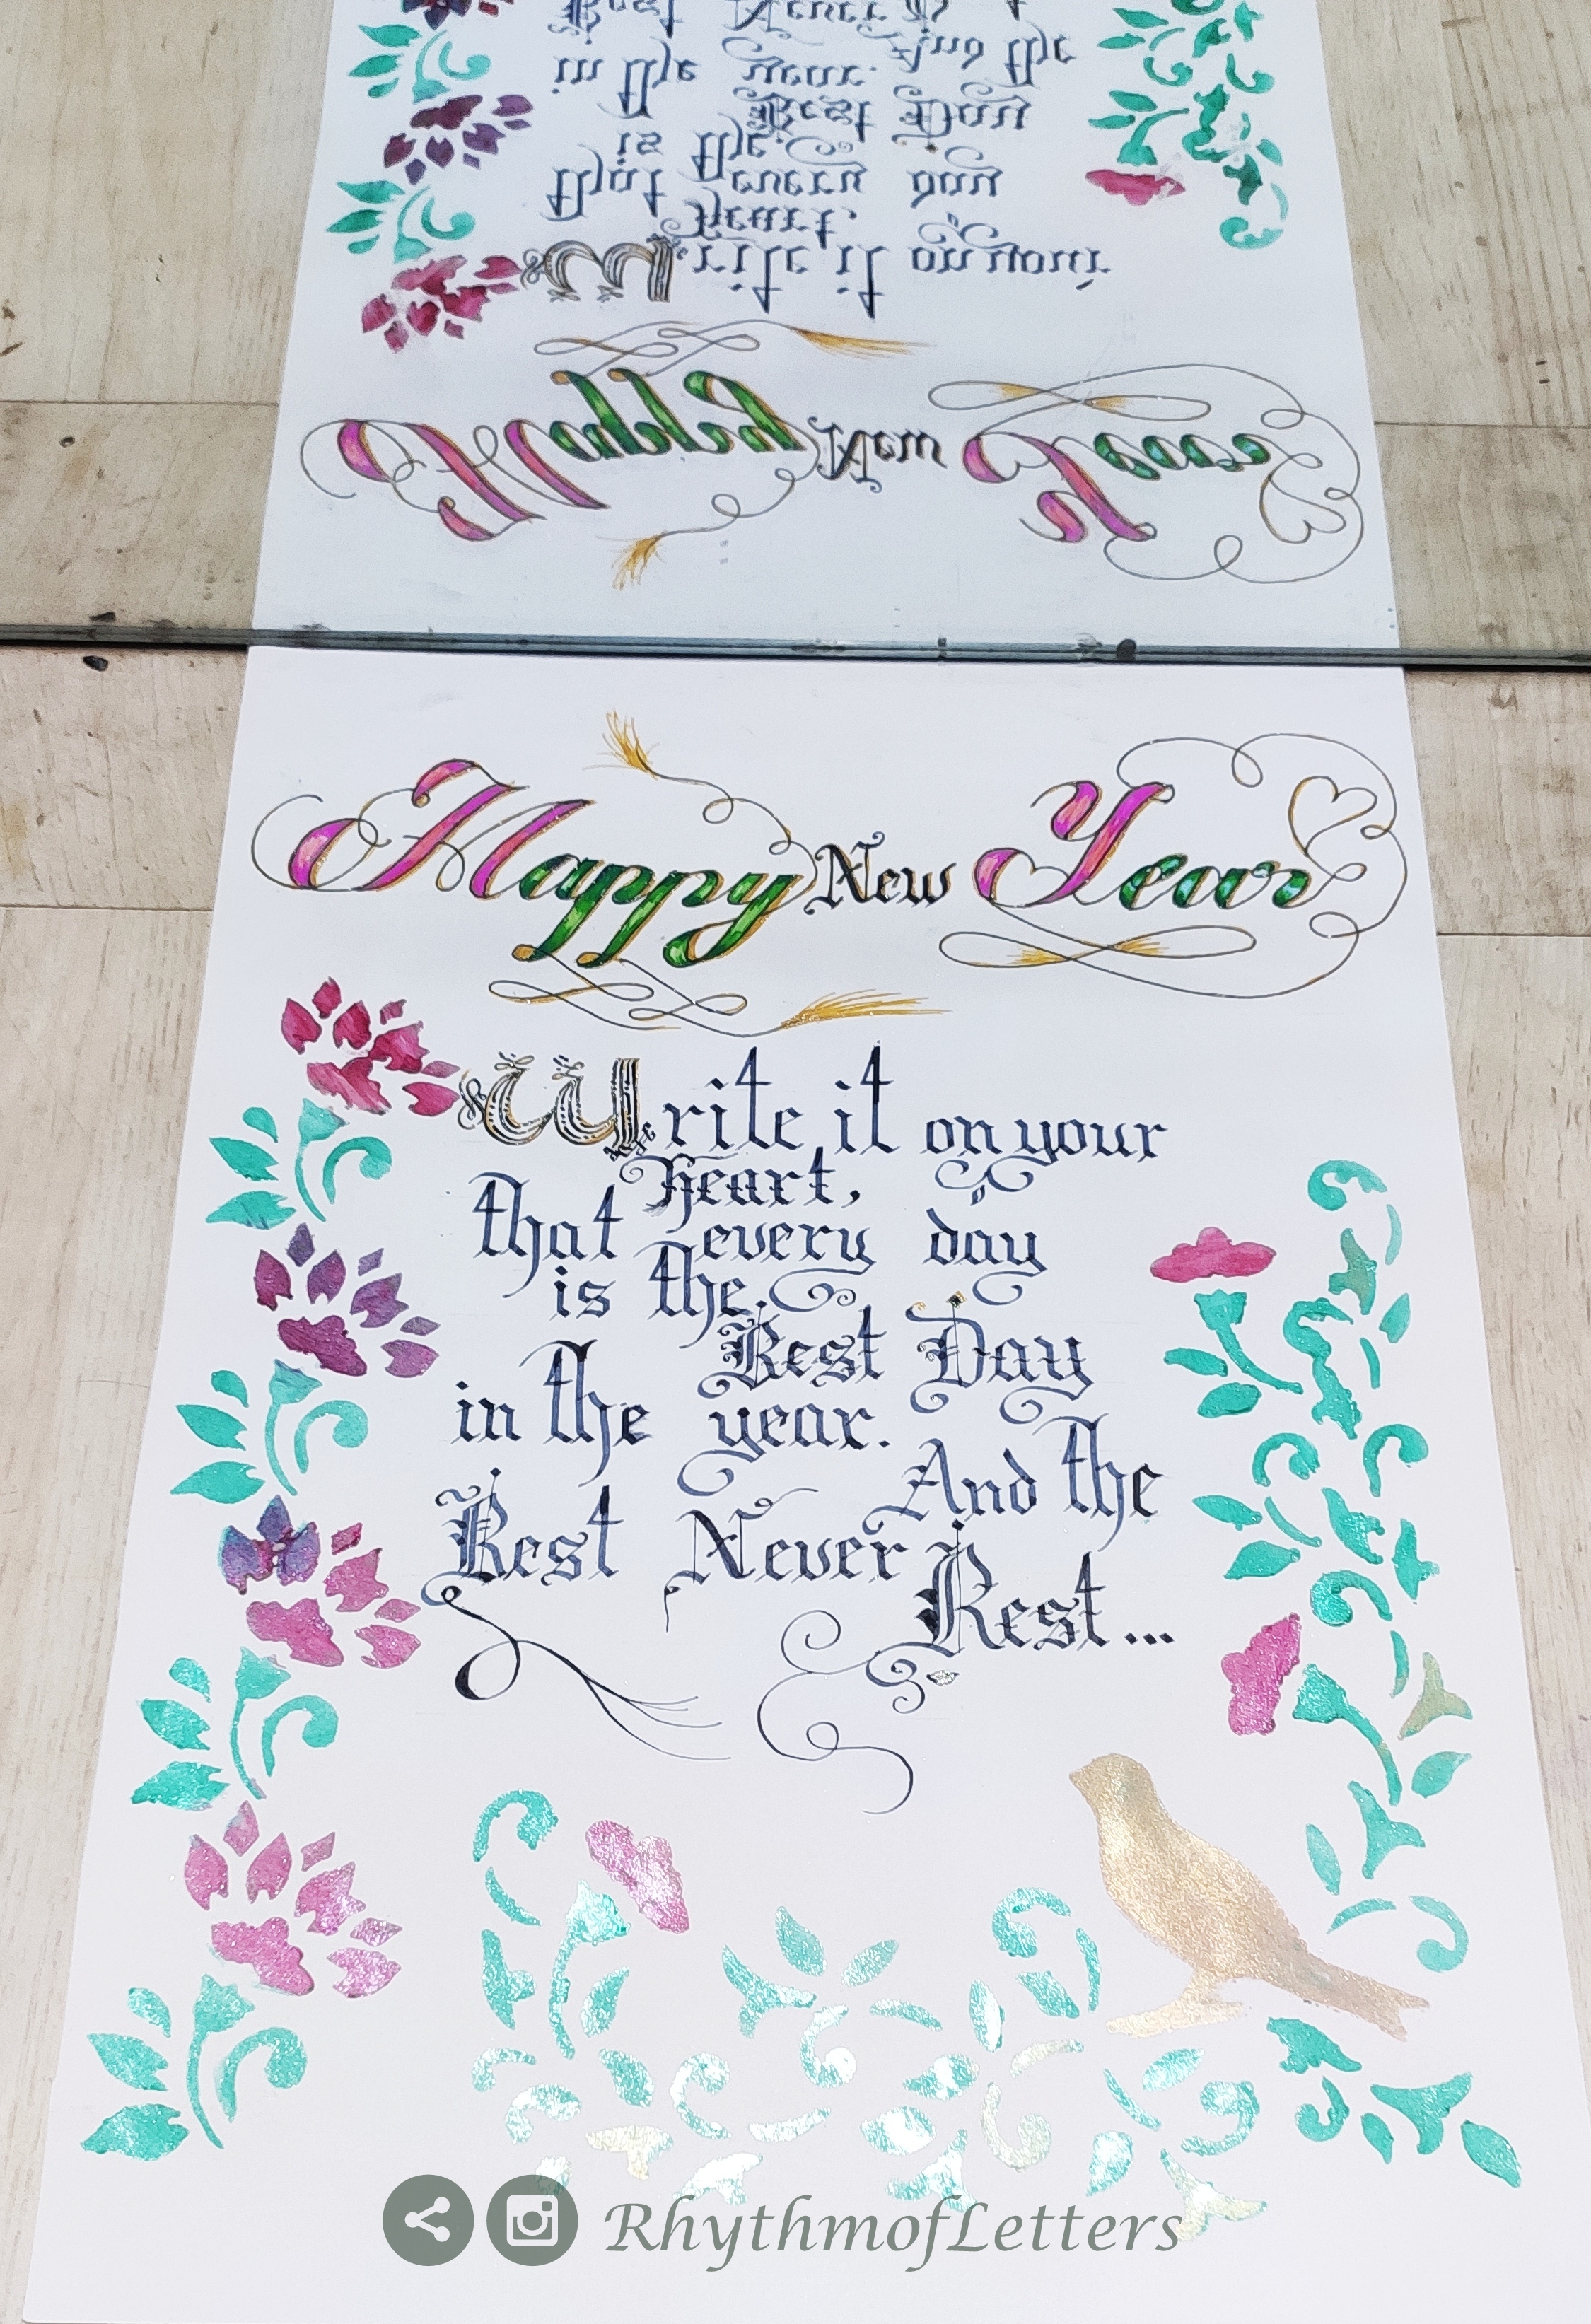 Happy New Year
Write it on your
heart,
that every day
is the
Best Day
in the year.
And the
Best Never
Rest...
RhythmofLetters